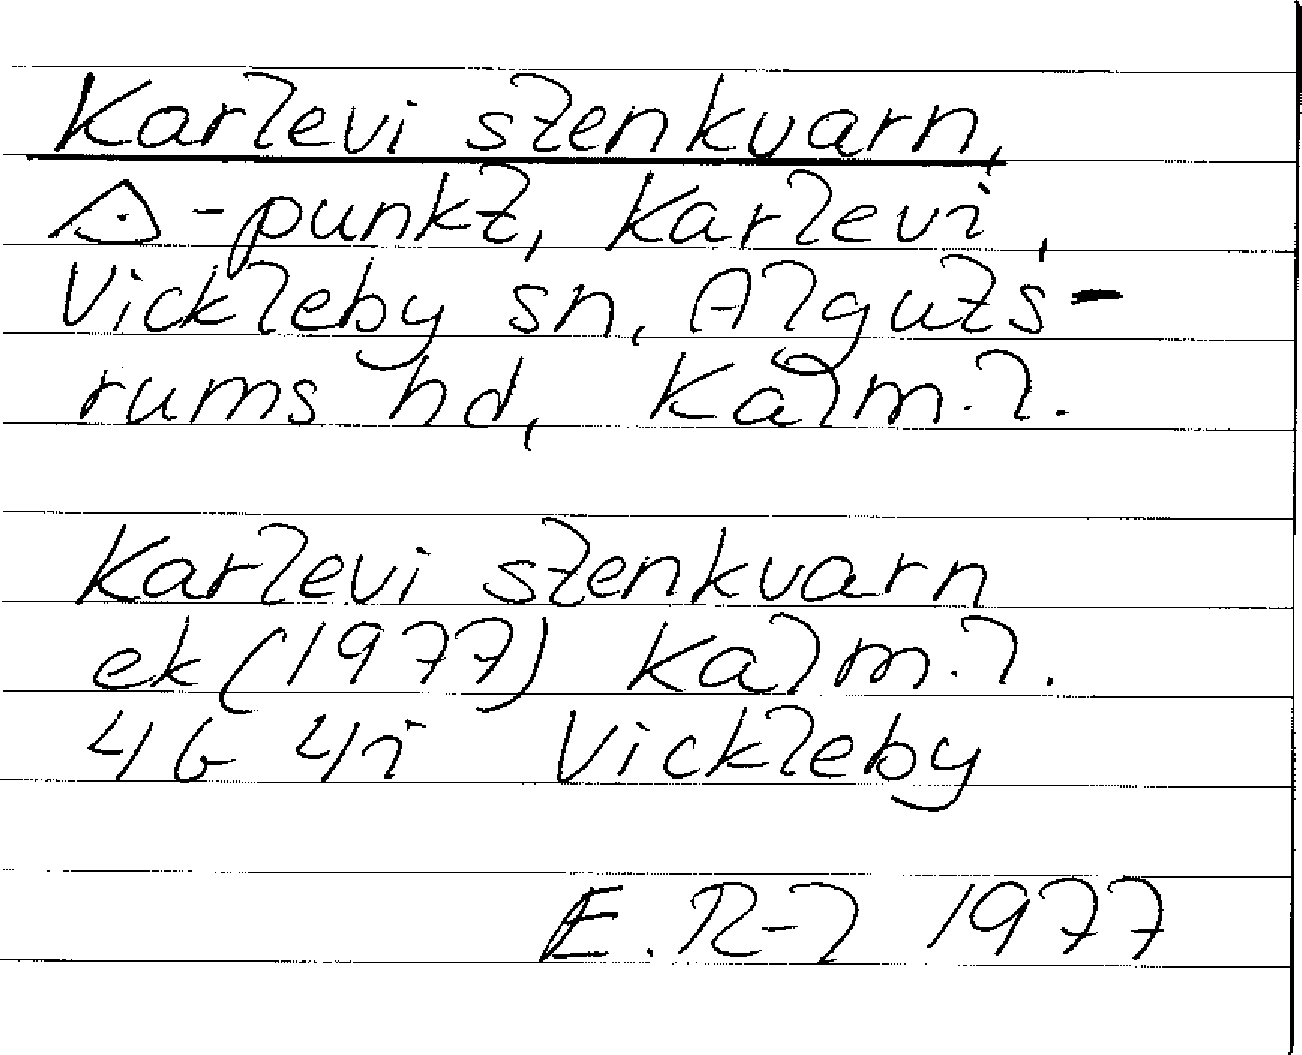 Karlevi stenkvarn,
△-punkt, Karlevi,
Vickleby sn, Alguts-
rums hd, Kalm. l.
Karlevi stenkvarn
ek (1977) Kalm. l.
4G 4i Vickleby
E. R-l 1977